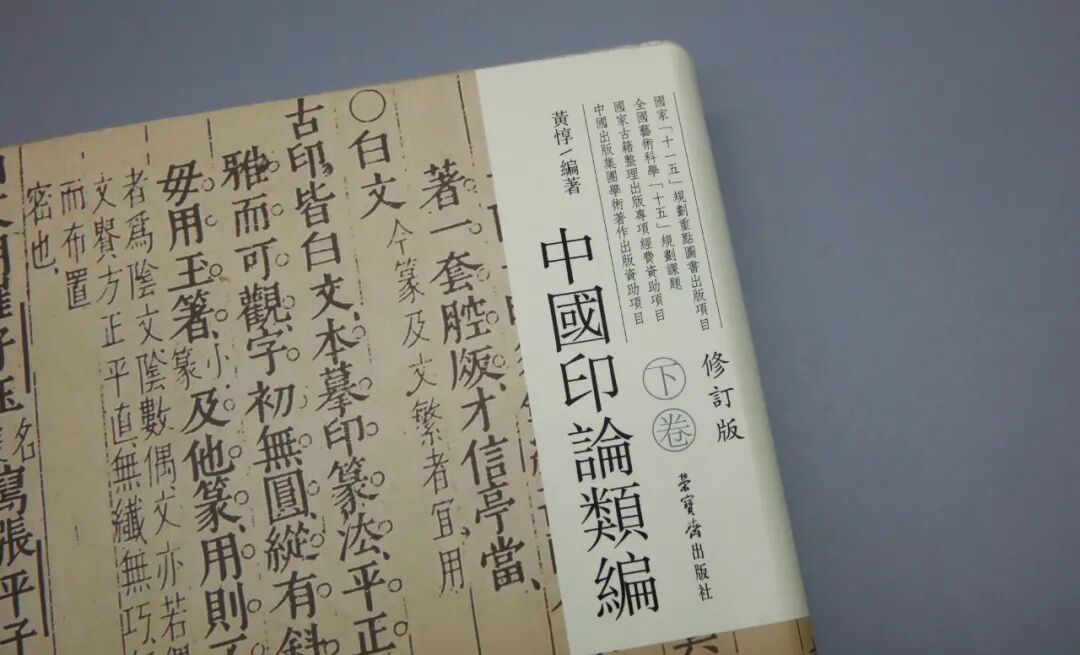 國家「十一五」規劃重點圖書出版項目
全國藝術科學「十五」規劃課題
國家古籍整理出版專項經費資助項目
中國出版集團學術著作出版資助項目
黃惇 編著
修訂版
下卷
中國印論類編
榮寶齋出版社
著一套腔瓪、才信亭當、
今篆及文繁者宜、用
○白文
古印、皆白文、本摹印篆法、平正。
雅而可觀。字初無圓、縱有斜
毋用玉箸、小篆及他篆、用則
者爲陰文陰數偶文亦若
文賢方正平直無纖無巧
而布置
密也、
子玉名
寫張平子